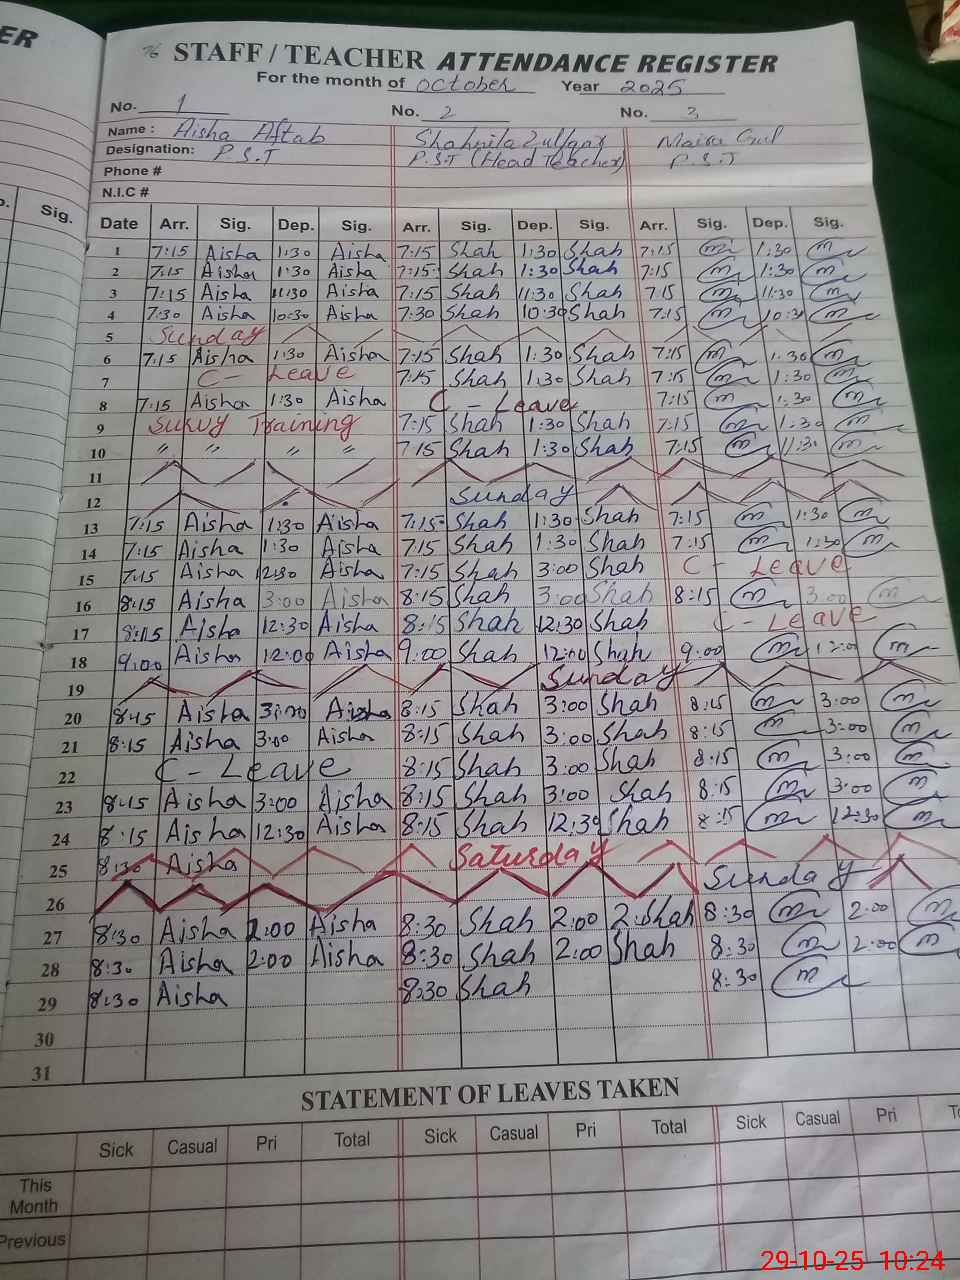 ER
76 STAFF / TEACHER ATTENDANCE REGISTER
For the month of October Year 2025
No. 1 No. 2 No. 3
Name : Aisha Aftab Shahnila Zulfqar Maira Gul
Designation: P.S.T P.S.T (Head Teacher) P.S.T
Phone #
N.I.C #
Sig. Date Arr. Sig. Dep. Sig. Arr. Sig. Dep. Sig. Arr. Sig. Dep. Sig.
1 7:15 Aisha 1:30 Aisha 7:15 Shah 1:30 Shah 7:15 m 1:30 m
2 7:15 Aisha 1:30 Aisha 7:15 Shah 1:30 Shah 7:15 m 1:30 m
3 7:15 Aisha 11:30 Aisha 7:15 Shah 11:30 Shah 7:15 m 11:30 m
4 7:30 Aisha 10:30 Aisha 7:30 Shah 10:30 Shah 7:15 m 10:30 m
5 Sunday
6 7:15 Aisha 1:30 Aisha 7:15 Shah 1:30 Shah 7:15 m 1:30 m
7 C - Leave 7:15 Shah 1:30 Shah 7:15 m 1:30 m
8 7:15 Aisha 1:30 Aisha C - Leave 7:15 m 1:30 m
9 Survy Training 7:15 Shah 1:30 Shah 7:15 m 1:30 m
10 " " " " 7:15 Shah 1:30 Shah 7:15 m 11:30 m
11
12 Sunday
13 7:15 Aisha 1:30 Aisha 7:15 Shah 1:30 Shah 7:15 m 1:30 m
14 7:15 Aisha 1:30 Aisha 7:15 Shah 1:30 Shah 7:15 m 1:30 m
15 7:15 Aisha 12:30 Aisha 7:15 Shah 3:00 Shah C - Leave
16 8:15 Aisha 3:00 Aisha 8:15 Shah 3:00 Shah 8:15 m 3:00 m
17 8:15 Aisha 12:30 Aisha 8:15 Shah 12:30 Shah C - Leave
18 9:00 Aisha 12:00 Aisha 9:00 Shah 12:00 Shah 9:00 m 12:00 m
19 Sunday
20 8:15 Aisha 3:00 Aisha 8:15 Shah 3:00 Shah 8:15 m 3:00 m
21 8:15 Aisha 3:00 Aisha 8:15 Shah 3:00 Shah 8:15 m 3:00 m
22 C - Leave 8:15 Shah 3:00 Shah 8:15 m 3:00 m
23 8:15 Aisha 3:00 Aisha 8:15 Shah 3:00 Shah 8:15 m 3:00 m
24 8:15 Aisha 12:30 Aisha 8:15 Shah 12:30 Shah 8:15 m 12:30 m
25 8:30 Aisha Saturday
26 Sunday
27 8:30 Aisha 2:00 Aisha 8:30 Shah 2:00 2: Shah 8:30 m 2:00 m
28 8:30 Aisha 2:00 Aisha 8:30 Shah 2:00 Shah 8:30 m 2:00 m
29 8:30 Aisha 8:30 Shah 8:30 m
30
31
STATEMENT OF LEAVES TAKEN
Sick Casual Pri Total Sick Casual Pri Total Sick Casual Pri
This
Month
Previous
29-10-25 10:24